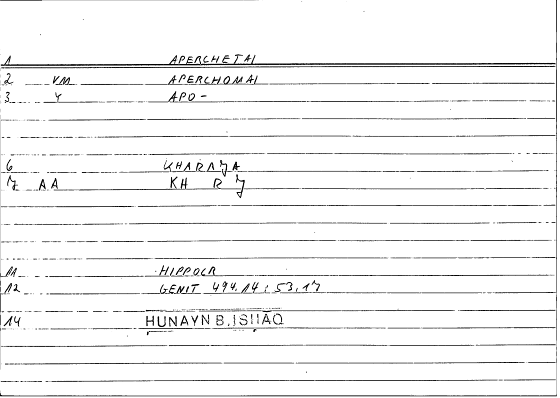 1 APERCHETAI
2 VM APERCHOMAI
3 Y APO-
6 KHARAJA
7 AA KH R J
11 HIPPOCR
12 GENIT 494.14 : 53.17
14 HUNAYN B. ISHAQ